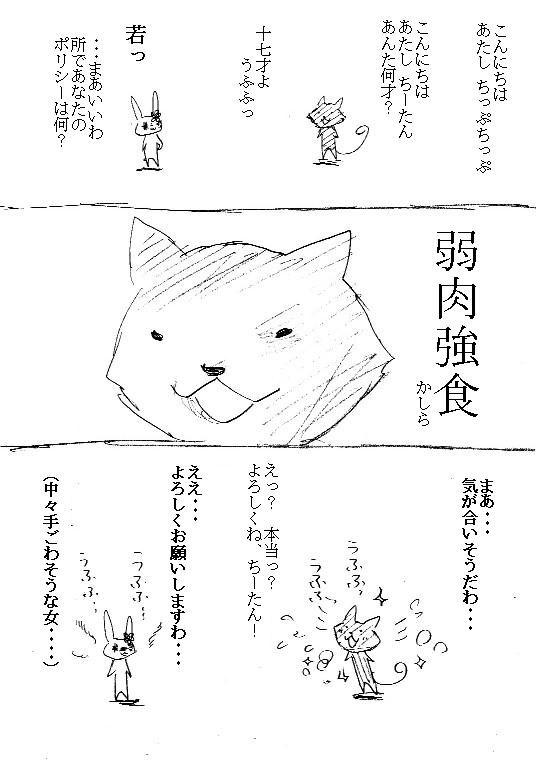 こんにちは
あたし ちっぷちっぷ
こんにちは
あたし ちーたん
あんた何才？
十七才よ
うふふっ
若っ
・・・まあいいわ
所であなたの
ポリシーは何？
弱肉強食
かしら
まあ・・・
気が合いそうだわ・・・
うふふ
うふふ
えっ？ 本当っ？
よろしくね、ちーたん！
ええ・・・
よろしくお願いしますわ・・・
うふふ・・
うふふ・・
（中々手ごわそうな女・・・・）